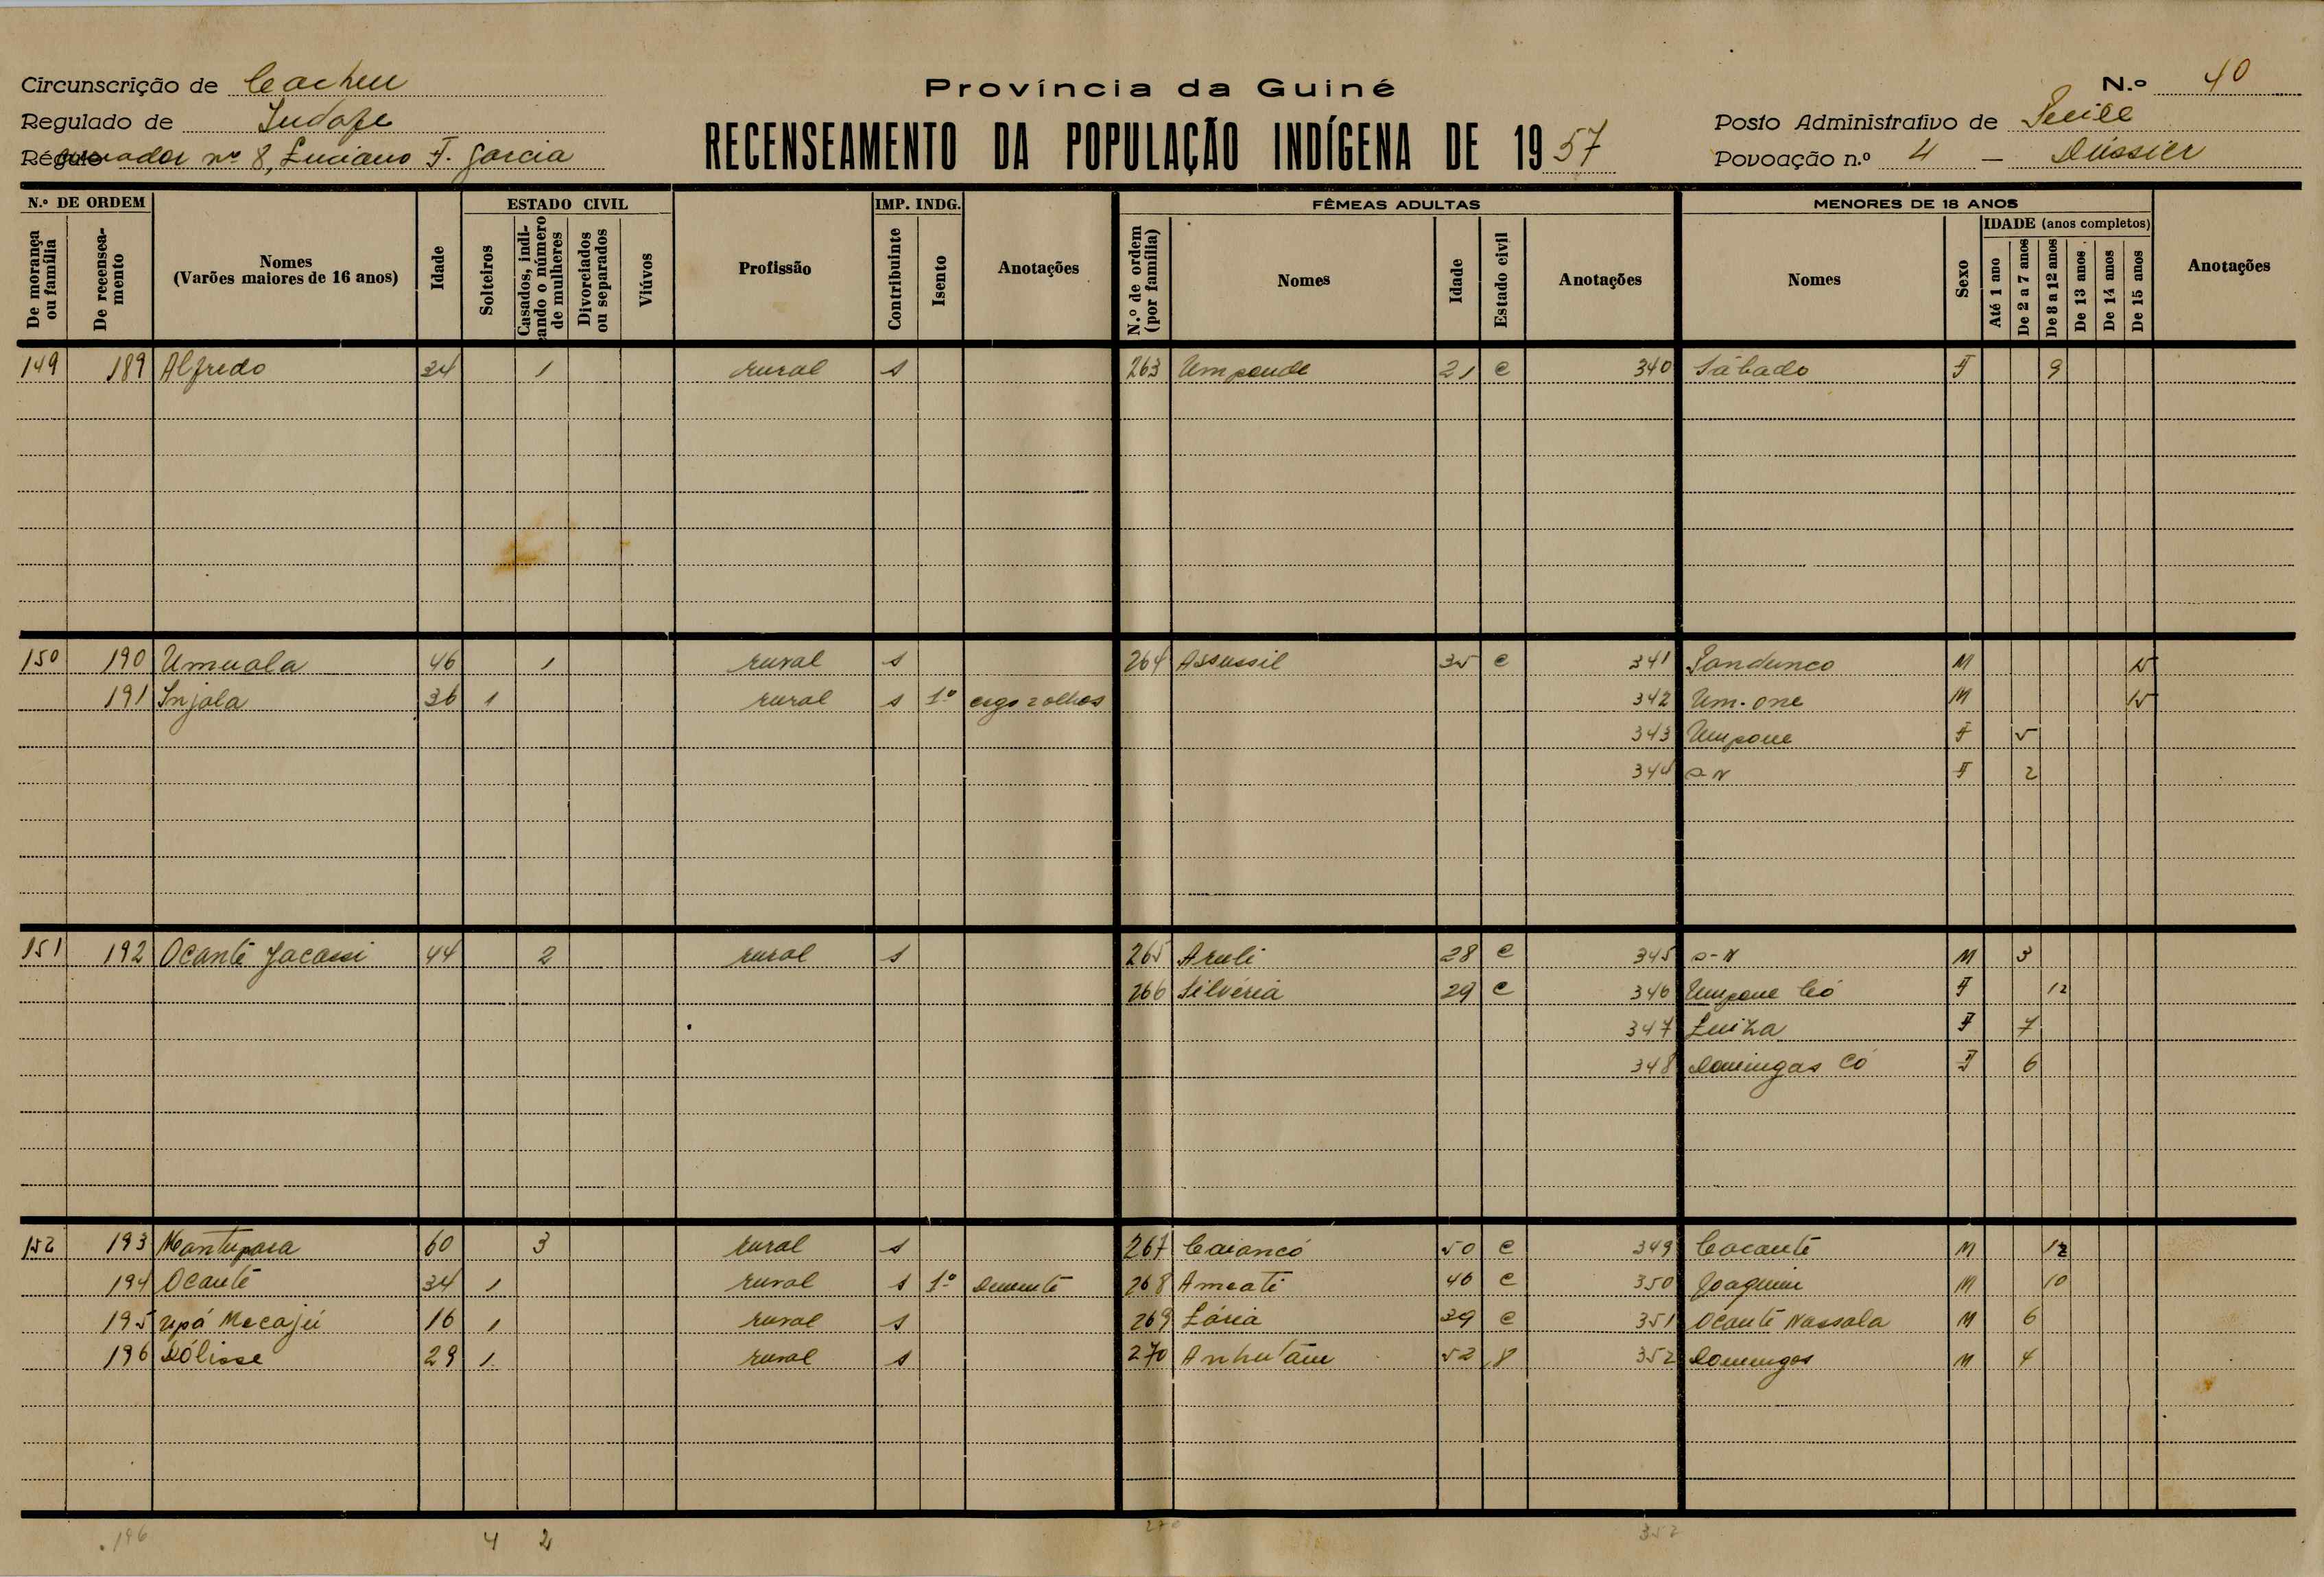 Circunscrição de Cacheu
Província da Guiné
N.º 40
Regulado de
RECENSEAMENTO DA POPULAÇÃO INDÍGENA DE 1957
Posto Administrativo de
nº 8, Luciano F. Garcia
Povoação n.º 4 —
N.º DE ORDEM
ESTADO CIVIL
IMP. INDG.
FÊMEAS ADULTAS
MENORES DE 18 ANOS
IDADE (anos completos)
De morança ou família
De reensea-mento
Nomes (Varões maiores de 16 anos)
Idade
Solteiros
Casados, indi-cando o número de mulheres
Divorciados ou separados
Viúvos
Profissão
Contribuinte
Isento
Anotações
N.º de ordem (por família)
Nomes
Idade
Estado civil
Anotações
Nomes
Sexo
Até 1 ano
De 2 a 7 anos
De 8 a 12 anos
De 13 anos
De 14 anos
De 15 anos
Anotações
149 189 Alfredo 34 1 rural s 263 Umponde 21 c 340 Sábado F 9
150 190 Umuala 46 1 rural s 264 Assussil 35 c 341 M 15
191 Injala 36 1 rural s 1º cego 2 olhos 342 Um-one M 15
343 Umpone F 5
344 s-N F 2
151 192 Ocanté Jacassi 44 2 rural s 265 Aruli 28 c 345 s-N M 3
266 Silvéria 29 c 346 Umpone Có F 12
347 Luiza F 7
348 Domingas Có F 6
152 193 60 3 rural s 267 Caiancó 50 c 349 Cacanté M 12
194 Ocanté 34 1 rural s 1º Demente 268 Ameati 46 c 350 Joaquim M 10
195 Upá Mecajú 16 1 rural s 269 39 c 351 Ocanté Nassala M 6
196 Dólisse 29 1 rural s 270 52 352 Domingos M 4
196 4 2 270 352